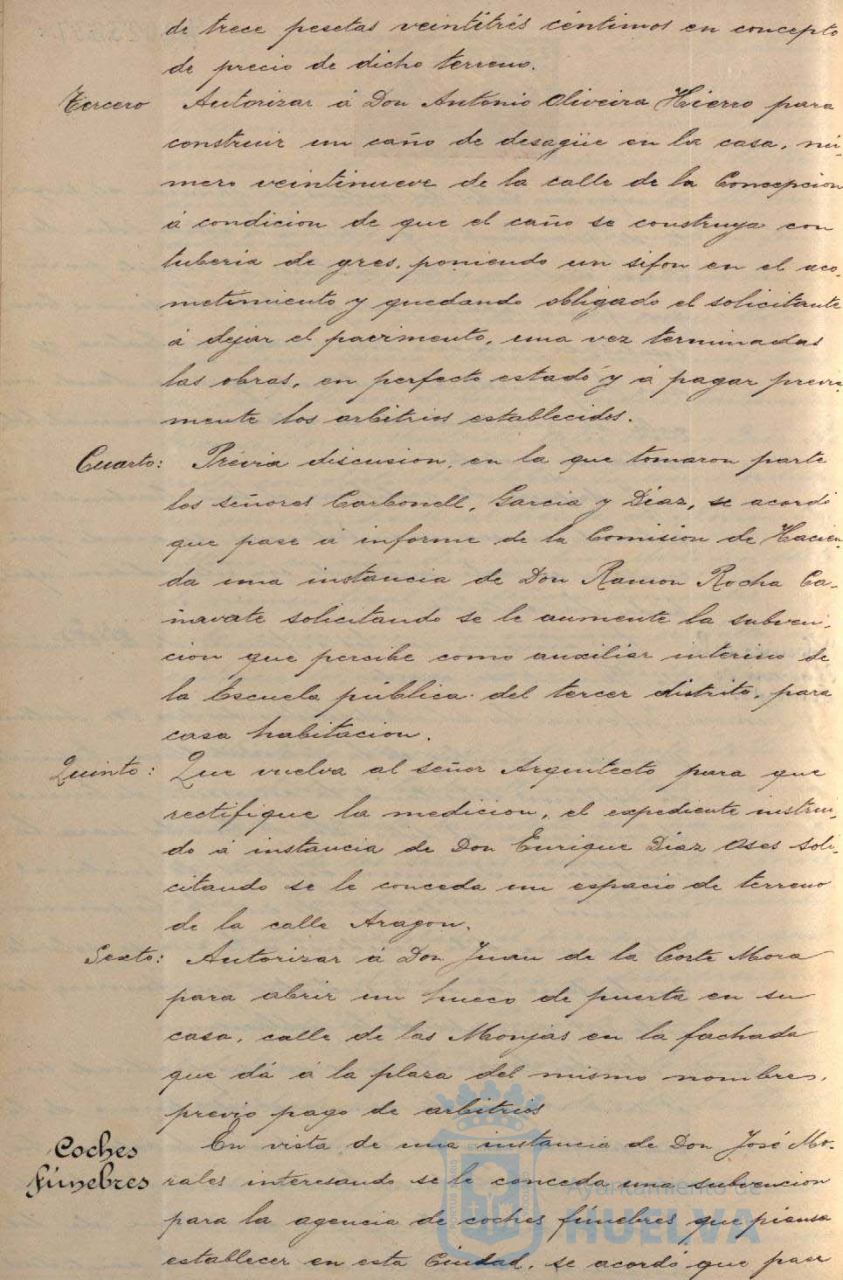 de trece pesetas veintitrés céntimos en concepto
de precio de dicho terreno.
Tercero Autorizar á Don Antonio Oliveira Hierro para
construir un caño de desagüe en la casa, nú-
mero veintinueve de la calle de la Concepcion
á condicion de que el caño se construya con
tuberia de gres, poniendo un sifon en el aco-
metimiento y quedando obligado el solicitante
á dejar el pavimento, una vez terminadas
las obras, en perfecto estado y á pagar previa-
mente los arbitrios establecidos.
Cuarto: Prévia discusion, en la que tomaron parte
los señores Carbonell, Garcia y Diaz, se acordó
que pase á informe de la Comision de Hacien-
da una instancia de Don Ramon Rocha Ca-
ñavate solicitando se le aumente la subven-
cion que percibe como auxiliar interino de
la Escuela pública del tercer distrito, para
casa habitacion.
Quinto: Que vuelva al señor Arquitecto para que
rectifique la medicion, el expediente instrui-
do á instancia de Don Enrique Diaz Oses soli-
citando se le conceda un espacio de terreno
de la calle Aragon.
Sexto: Autorizar á Don Juan de la Corte Mora
para abrir un hueco de puerta en su
casa, calle de las Monjas en la fachada
que dá á la plaza del mismo nombre,
previo pago de arbitrios
Coches fúnebres En vista de una instancia de Don José Mo-
rales interesando se le conceda una subvencion
para la agencia de coches fúnebres que piensa
establecer en esta Ciudad, se acordó que pase
Ayuntamiento de
HUELVA